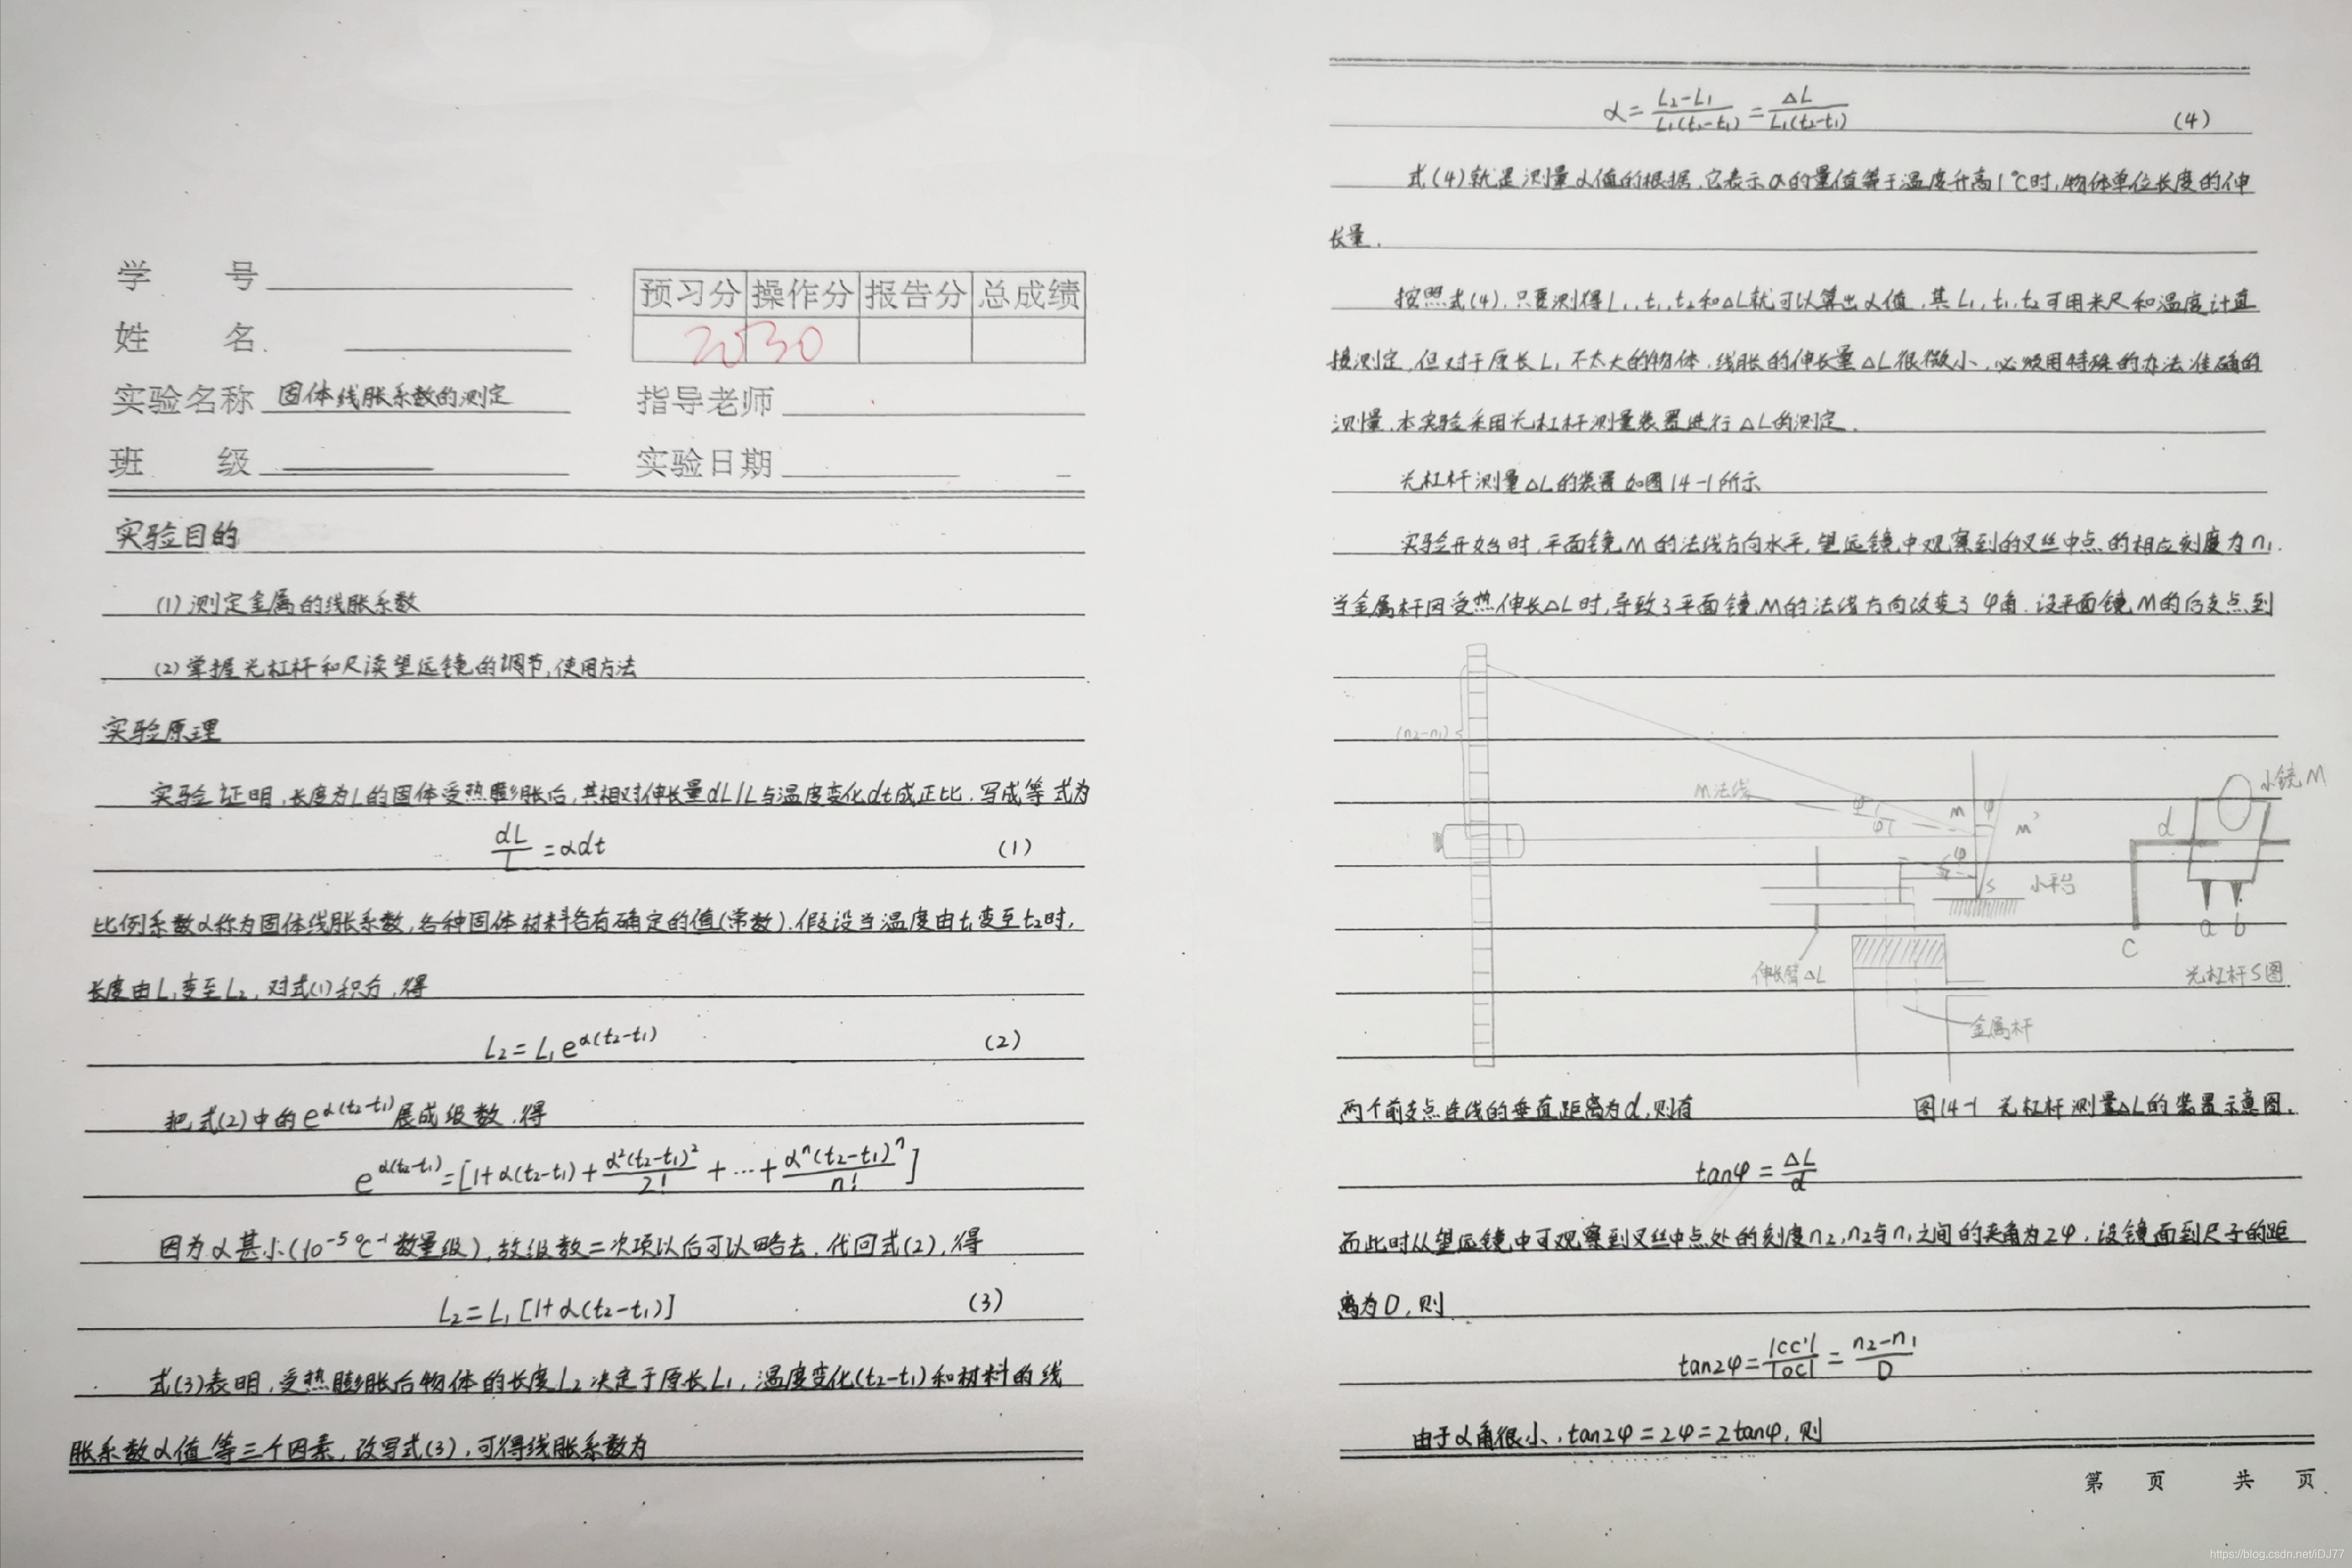 学 号
姓 名
实验名称 固体线胀系数的测定
班 级
预习分 操作分 报告分 总成绩
20 30
指导老师
实验日期
实验目的
(1)测定金属的线胀系数
(2)掌握光杠杆和尺读望远镜的调节,使用方法
实验原理
实验证明,长度为L的固体受热膨胀后,其相对伸长量dL/L与温度变化dt成正比,写成等式为
dL/L=αdt (1)
比例系数α称为固体线胀系数,各种固体材料各有确定的值(常数).假设当温度由t₁变至t₂时,
长度由L₁变至L₂,对式(1)积分,得
L₂=L₁e^α(t₂-t₁) (2)
把式(2)中的e^α(t₂-t₁)展成级数,得
e^α(t₂-t₁)=[1+α(t₂-t₁)+α²(t₂-t₁)²/2!+…+αⁿ(t₂-t₁)ⁿ/n!]
因为α甚小(10⁻⁵℃⁻¹数量级),故级数二次项以后可以略去,代回式(2),得
L₂=L₁[1+α(t₂-t₁)] (3)
式(3)表明,受热膨胀后物体的长度L₂决定于原长L₁,温度变化(t₂-t₁)和材料的线
胀系数α值等三个因素,改写式(3),可得线胀系数为
α=L₂-L₁/L₁(t₂-t₁)=ΔL/L₁(t₂-t₁) (4)
式(4)就是测量α值的根据,它表示α的量值等于温度升高1℃时,物体单位长度的伸
长量.
按照式(4),只要测得L₁,t₁,t₂和ΔL就可以算出α值,其L₁,t₁,t₂可用米尺和温度计直
接测定,但对于原长L₁不太大的物体,线胀的伸长量ΔL很微小,必须用特殊的办法准确的
测量,本实验采用光杠杆测量装置进行ΔL的测定.
光杠杆测量ΔL的装置如图14-1所示
实验开始时,平面镜M的法线方向水平,望远镜中观察到的叉丝中点的相应刻度为n₁.
当金属杆因受热伸长ΔL时,导致了平面镜M的法线方向改变了φ角.设平面镜M的后支点到
(n₂-n₁)
M法线
φ
φ
M
φ
M'
φ
S
小平台
伸长臂ΔL
金属杆
小镜M
d
a b
c
光杠杆S图
两个前支点连线的垂直距离为d,则有
图14-1 光杠杆测量ΔL的装置示意图.
tanφ=ΔL/d
而此时从望远镜中可观察到叉丝中点处的刻度n₂,n₂与n₁之间的夹角为2φ,设镜面到尺子的距
离为D,则
tan2φ=|cc'|/|oc|=n₂-n₁/D
由于α角很小,tan2φ=2φ=2tanφ,则
第 页 共 页
https://blog.csdn.net/iDJ77